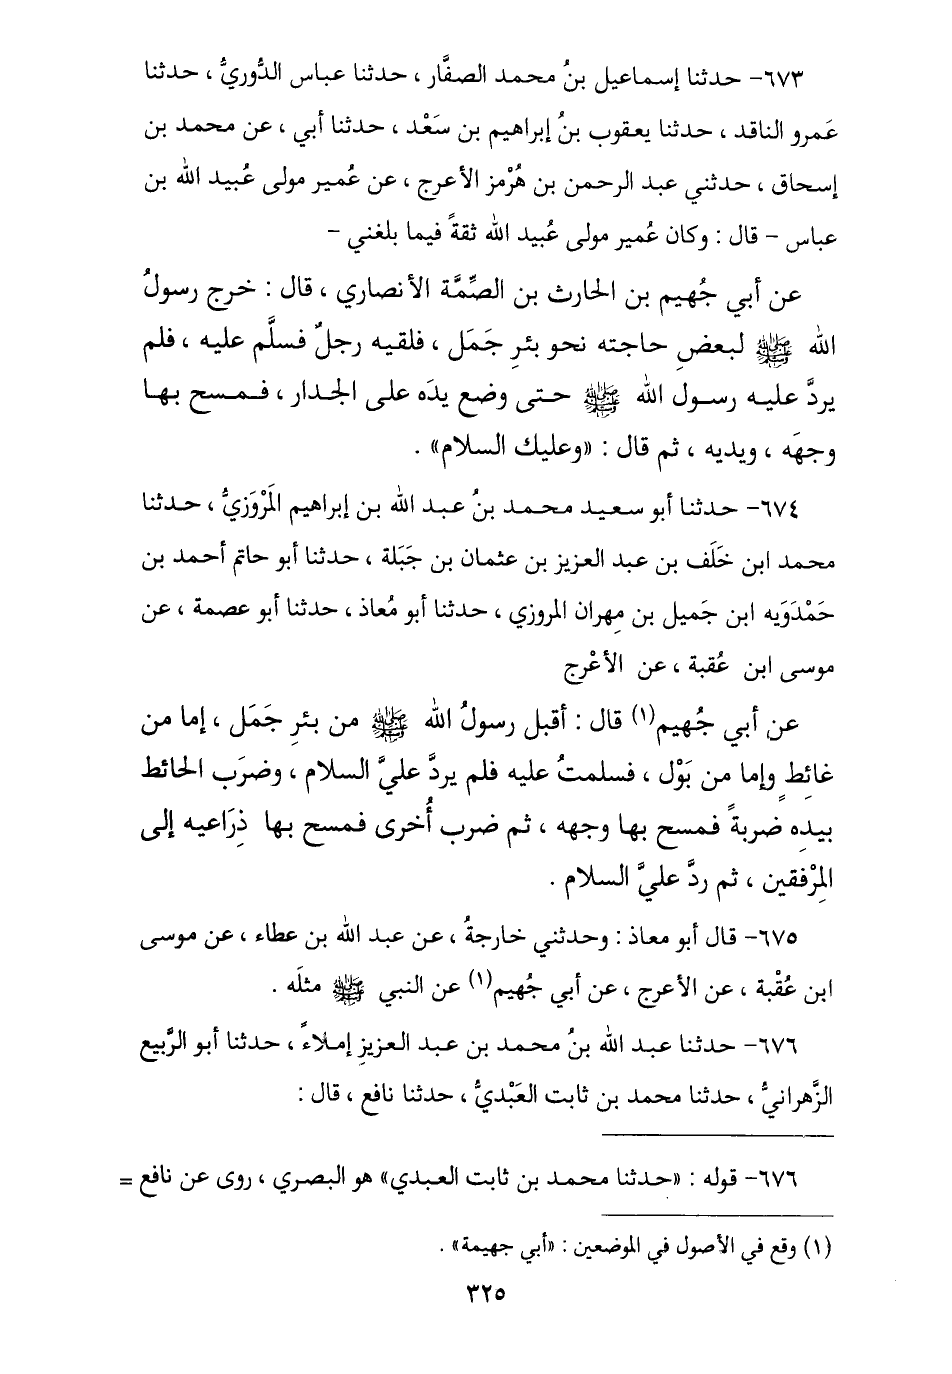 ٦٧٣- حدثنا إسماعيل بنُ محمد الصفَّار ، حدثنا عباس الدُّوريُّ ، حدثنا
عَمرو الناقد ، حدثنا يعقوب بنُ إبراهيم بن سَعْد ، حدثنا أبي ، عن محمد بن
إسحاق ، حدثني عبد الرحمن بن هُرْمز الأعرج ، عن عُمير مولى عُبيد الله بن
عباس – قال : وكان عُمير مولى عُبيد الله ثقةً فيما بلغني –
عن أبي جُهيم بن الحارث بن الصِّمَّة الأنصاري ، قال : خرج رسولُ
الله ﷺ لبعضِ حاجته نحو بئرِ جَمَل ، فلقيه رجلٌ فسلَّم عليه ، فلم
يردَّ عليه رسول الله ﷺ حتى وضع يدَه على الجدار ، فمسح بها
وجهَه ، ويديه ، ثم قال : «وعليك السلام» .
٦٧٤- حدثنا أبو سعيد محمد بنُ عبد الله بن إبراهيم المَرْوَزيُّ ، حدثنا
محمد ابن خَلَف بن عبد العزيز بن عثمان بن جَبَلة ، حدثنا أبو حاتم أحمد بن
حَمْدَوَيه ابن جَميل بن مِهران المروزي ، حدثنا أبو مُعاذ ، حدثنا أبو عصمة ، عن
موسى ابن عُقبة ، عن الأعْرج
عن أبي جُهيم(١) قال : أقبل رسولُ الله ﷺ من بئرِ جَمَل ، إما من
غائطٍ وإما من بَوْل ، فسلمتُ عليه فلم يردَّ عليَّ السلام ، وضرَب الحائط
بيدِه ضربةً فمسح بها وجهه ، ثم ضرب أُخرى فمسح بها ذِرَاعيه إلى
المِرْفقين ، ثم ردَّ عليَّ السلام .
٦٧٥- قال أبو معاذ : وحدثني خارجةُ ، عن عبد الله بن عطاء ، عن موسى
ابن عُقْبة ، عن الأعرج ، عن أبي جُهيم(١) عن النبي ﷺ مثلَه .
٦٧٦- حدثنا عبد الله بنُ محمد بن عبد العزيزِ إملاءً ، حدثنا أبو الرَّبيع
الزَّهرانيُّ ، حدثنا محمد بن ثابت العَبْديُّ ، حدثنا نافع ، قال :
٦٧٦- قوله : «حدثنا محمد بن ثابت العبدي» هو البصري ، روى عن نافع =
(١) وقع في الأصول في الموضعين : «أبي جهيمة» .
٣٢٥